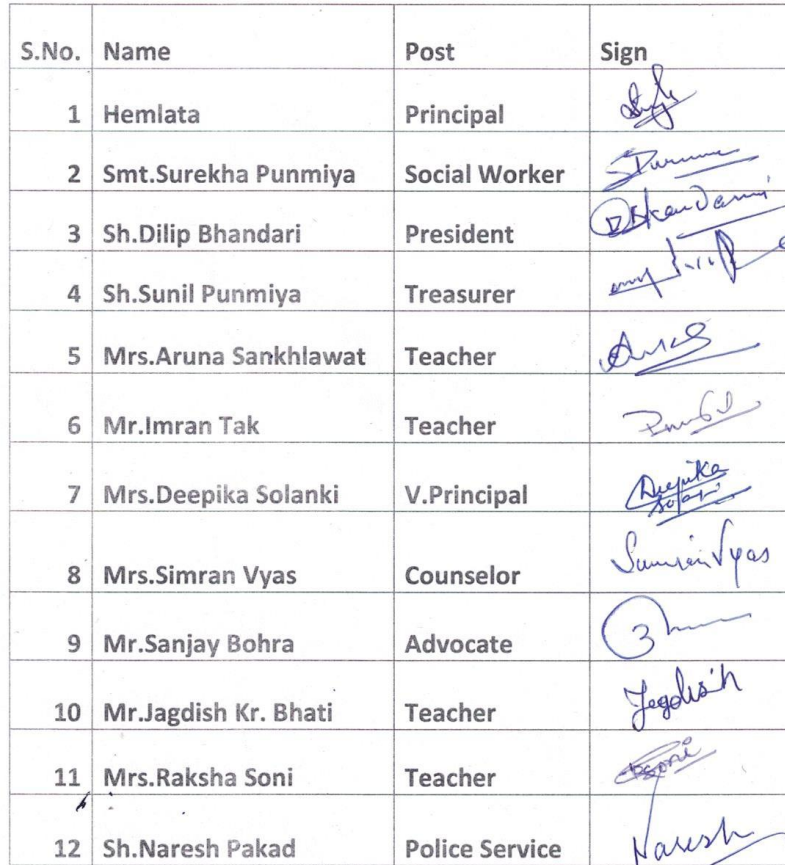 S.No. Name Post Sign
1 Hemlata Principal
2 Smt.Surekha Punmiya Social Worker
3 Sh.Dilip Bhandari President
4 Sh.Sunil Punmiya Treasurer
5 Mrs.Aruna Sankhlawat Teacher
6 Mr.Imran Tak Teacher
7 Mrs.Deepika Solanki V.Principal Deepika
8 Mrs.Simran Vyas Counselor Simran Vyas
9 Mr.Sanjay Bohra Advocate
10 Mr.Jagdish Kr. Bhati Teacher Jagdish
11 Mrs.Raksha Soni Teacher
12 Sh.Naresh Pakad Police Service Naresh